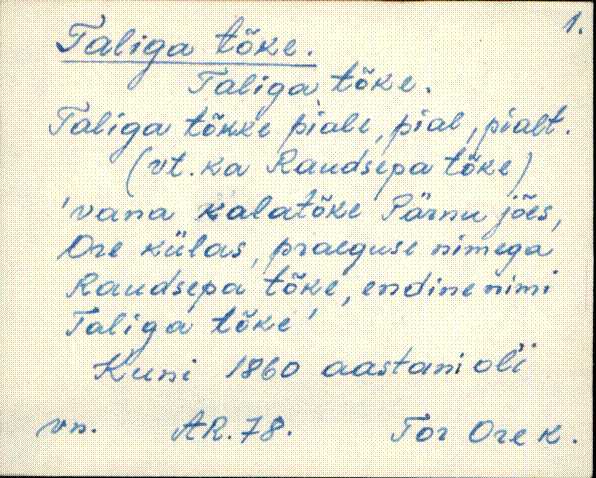 1.
Taliga tõke.
Taliga tõke.
Taliga tõkke piale, pial, pialt.
(vt. ka Raudsepa tõke)
'vana kalatõke Pärnu jões,
Ore külas, praeguse nimega
Raudsepa tõke, endine nimi
Taliga tõke'
Kuni 1860 aastani oli
vn. AR. 78. Tor Ore k.